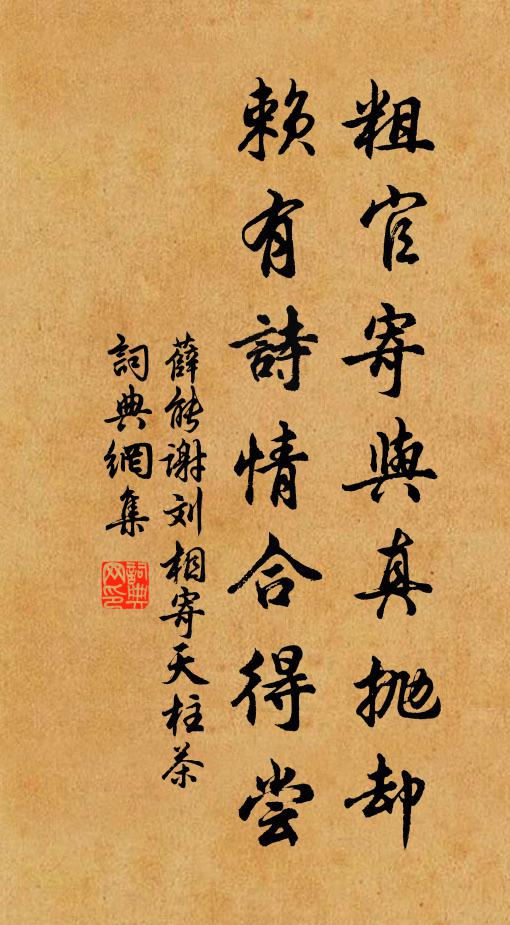 粗官寄與真抛却
賴有詩情合得尝
薛能谢刘相寄天柱茶
詞典網集
詞典网印